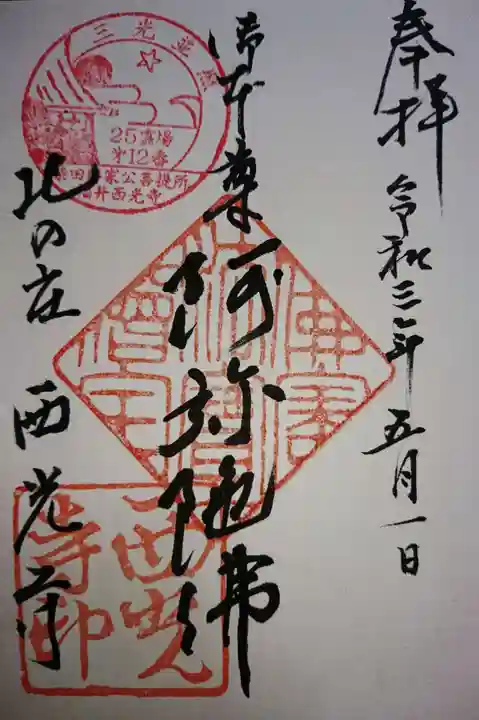 奉拝 令和三年五月一日
御本尊 阿弥陀佛
北の庄 西光寺
三光霊場
25霊場
第12番
柴田勝家公菩提所
福井西光寺
佛法僧寶
西光寺印